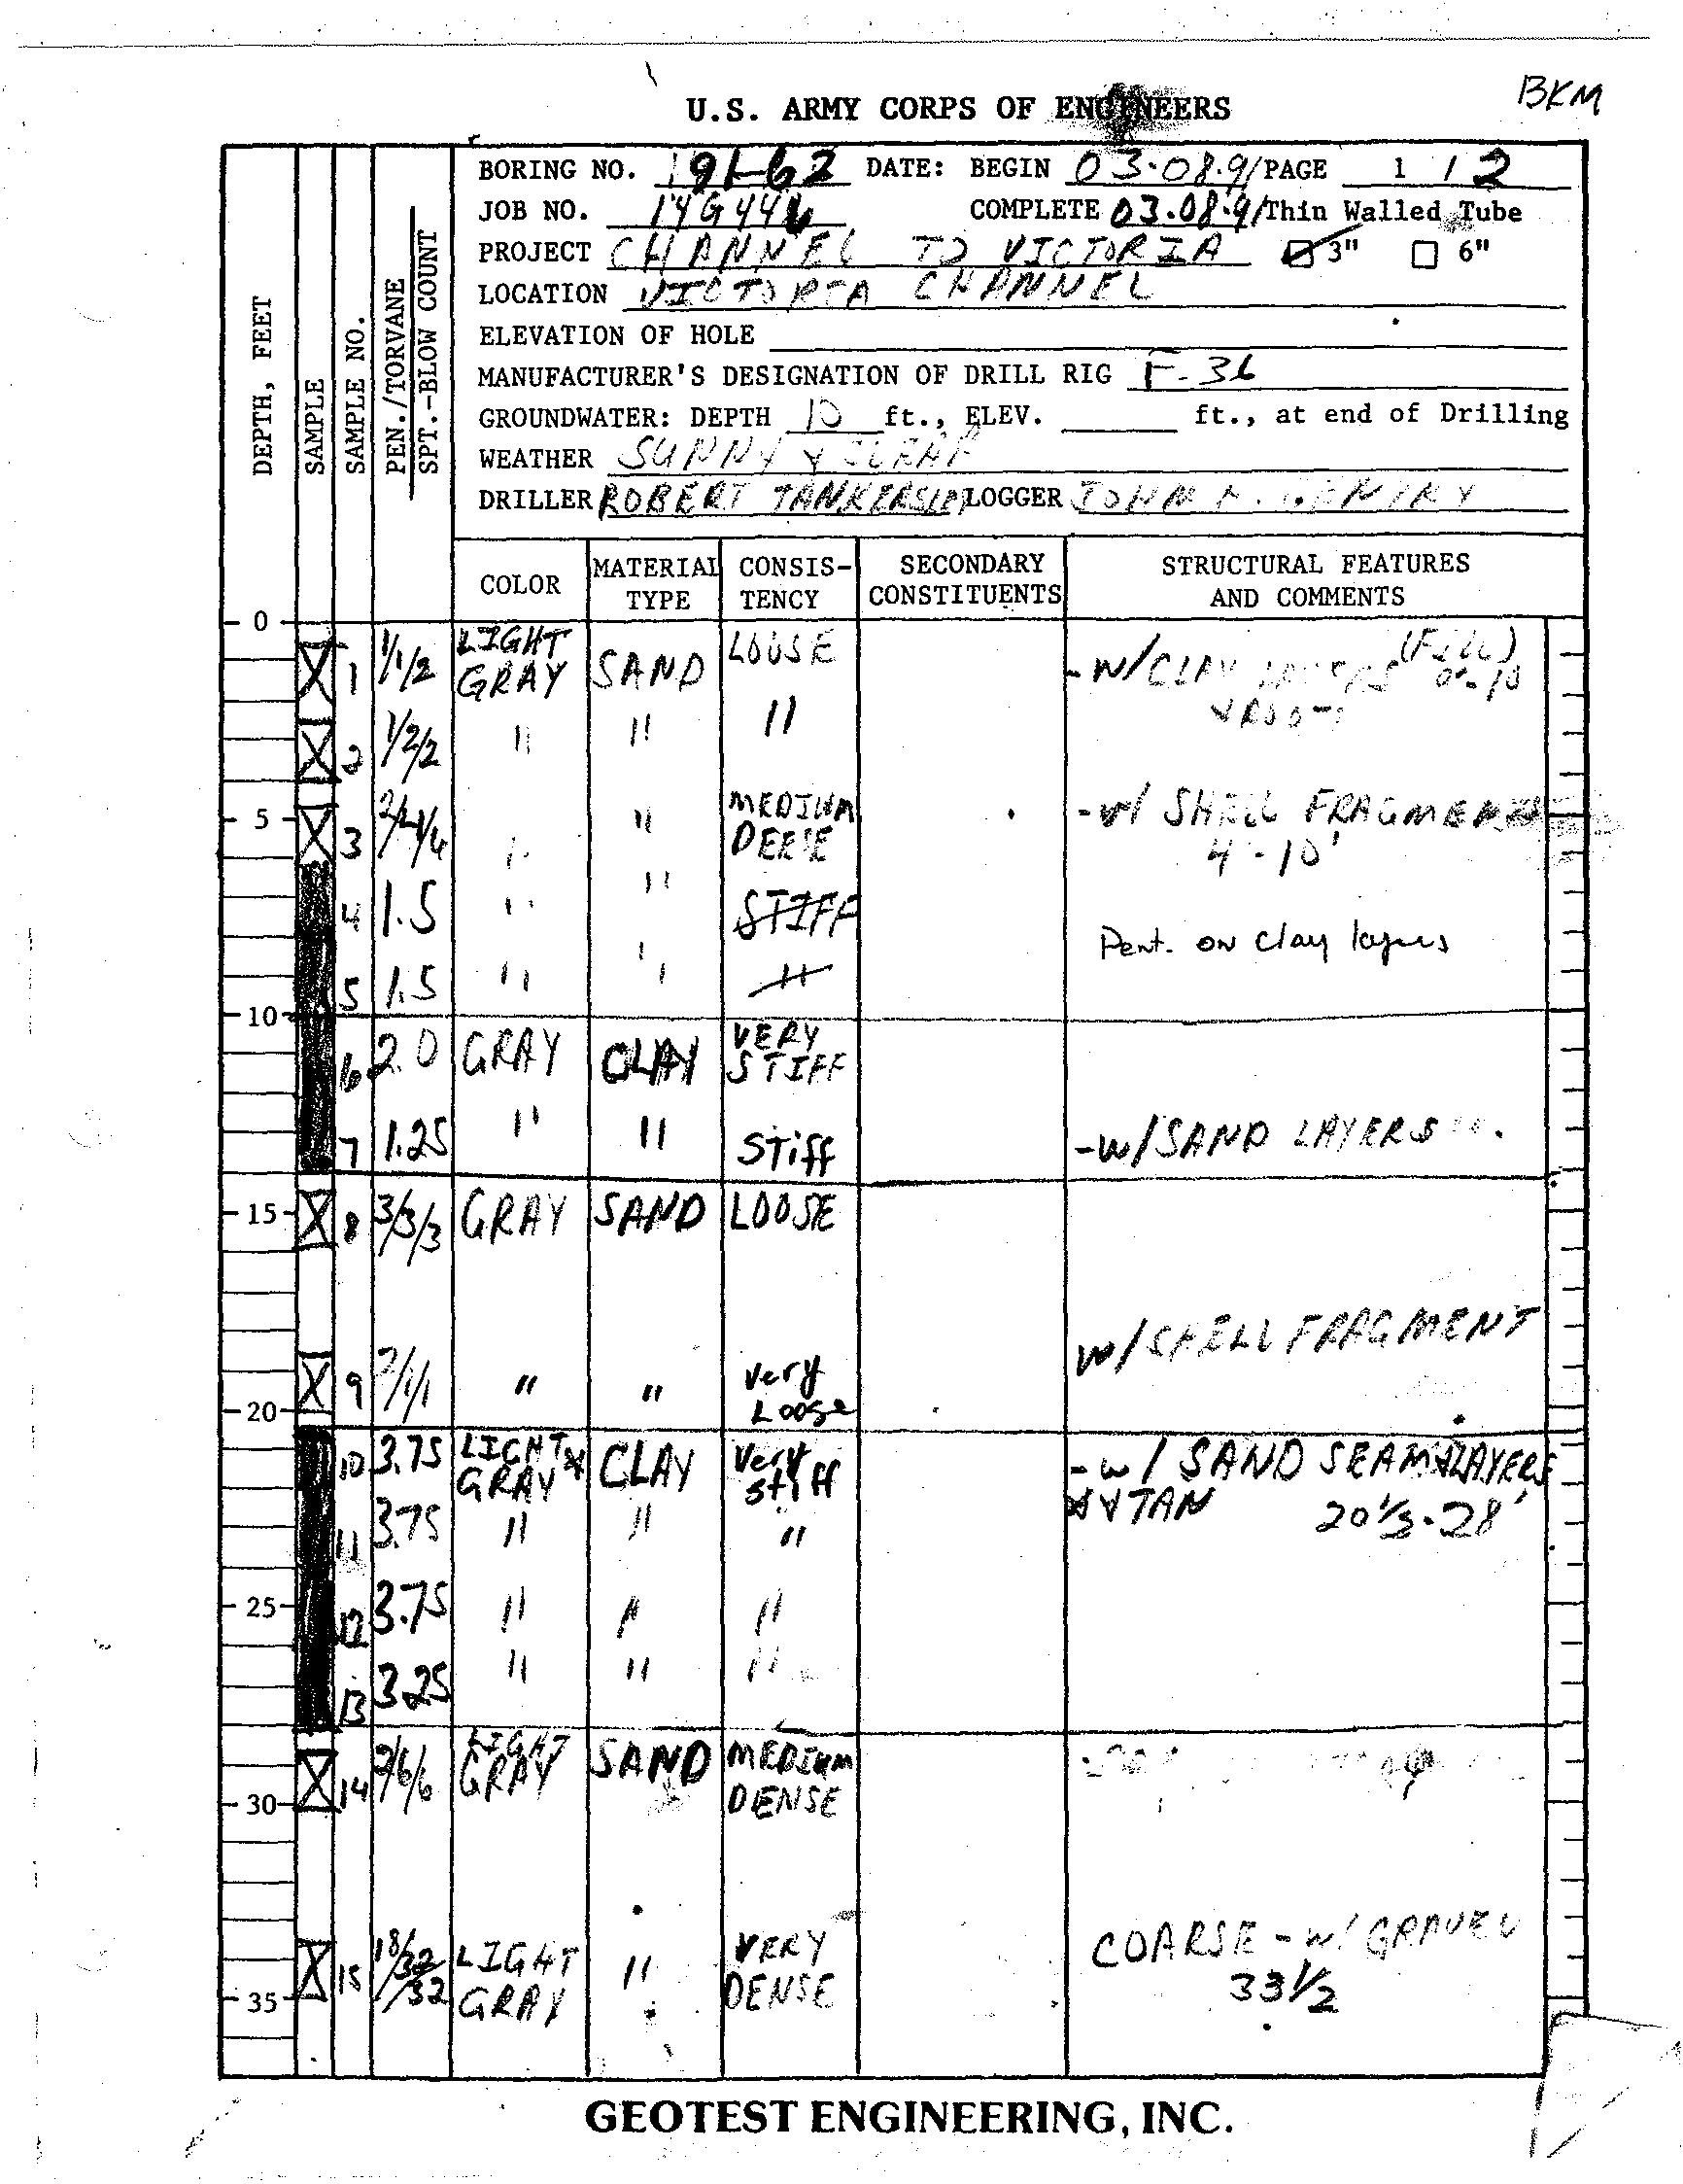 BKM
U.S. ARMY CORPS OF ENGINEERS
BORING NO. 91-62 DATE: BEGIN 03.08.91 PAGE 1 / 2
JOB NO. COMPLETE 03.08.91 Thin Walled Tube
PROJECT CHANNEL TO VICTORIA 3" 6"
LOCATION VICTORIA CHANNEL
ELEVATION OF HOLE
MANUFACTURER'S DESIGNATION OF DRILL RIG F-36
GROUNDWATER: DEPTH 10 ft., ELEV. ft., at end of Drilling
WEATHER SUNNY & CLEAR
DRILLER ROBERT LOGGER JOHN
DEPTH, FEET
SAMPLE
SAMPLE NO.
PEN./TORVANE
SPT.-BLOW COUNT
COLOR MATERIAL TYPE CONSIS-TENCY SECONDARY CONSTITUENTS STRUCTURAL FEATURES AND COMMENTS
0
1 1/1/2 LIGHT GRAY SAND LOOSE -W/CLAY (Fill)
2 1/2/2 " " "
5 3 " " MEDIUM -W/ SHELL FRAGMENTS
4'-10'
4 1.5 " " STIFF
Pent. on clay layers
5 1.5 " " "
10
6 2.0 GRAY CLAY VERY STIFF
7 1.25 " " Stiff -W/SAND LAYERS
15 8 3/3/3 GRAY SAND LOOSE
W/SHELL FRAGMENT
9 2/1/1 " " Very Loose
20
10 3.75 LIGHT GRAY CLAY Very stiff -W/ SAND SEAMS & LAYERS
& TAN 20 1/3 - 28'
11 3.75 " " "
25 12 3.75 " " "
13 3.25 " " "
14 2/6/6 LIGHT GRAY SAND MEDIUM DENSE
30
15 18/32/32 LIGHT GRAY " VERY DENSE COARSE - W/ GRAVEL
33 1/2
35
GEOTEST ENGINEERING, INC.